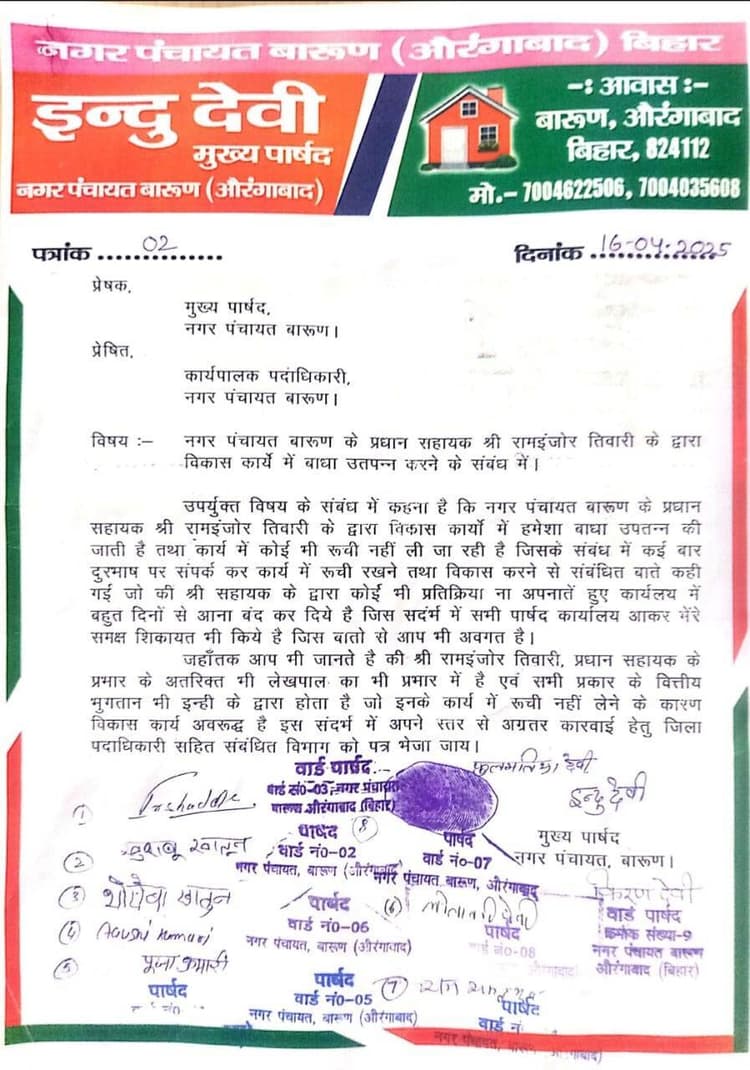 नगर पंचायत बारूण (औरंगाबाद) बिहार
इन्दु देवी
मुख्य पार्षद
नगर पंचायत बारूण (औरंगाबाद)
-: आवास :-
बारूण, औरंगाबाद
बिहार, 824112
मो.– 7004622506, 7004035608
पत्रांक ...02...
दिनांक ...16-04-2025
प्रेषक,
मुख्य पार्षद,
नगर पंचायत बारूण।
प्रेषित,
कार्यपालक पदाधिकारी,
नगर पंचायत बारूण।
विषय :– नगर पंचायत बारूण के प्रधान सहायक श्री रामइंजोर तिवारी के द्वारा
विकास कार्ये में बाधा उतपन्न करने के संबंध में।
उपर्युक्त विषय के संबंध में कहना है कि नगर पंचायत बारूण के प्रधान
सहायक श्री रामइंजोर तिवारी के द्वारा विकास कार्यो में हमेशा बाधा उपतन्न की
जाती है तथा कार्य में कोई भी रूची नहीं ली जा रही है जिसके संबंध में कई बार
दुरभाष पर संपर्क कर कार्य में रूची रखने तथा विकास करने से संबंधित बाते कही
गई जो की श्री सहायक के द्वारा कोई भी प्रतिक्रिया ना अपनाते हुए कार्यलय में
बहुत दिनों से आना बंद कर दिये है जिस सदर्भ में सभी पार्षद कार्यालय आकर मेंरे
समक्ष शिकायत भी किये है जिस बातो से आप भी अवगत है।
जहाँतक आप भी जानते है की श्री रामइंजोर तिवारी, प्रधान सहायक के
प्रभार के अतरिक्त भी लेखपाल का भी प्रभार में है एवं सभी प्रकार के वित्तीय
भुगतान भी इन्ही के द्वारा होता है जो इनके कार्य में रूची नहीं लेने के कारण
विकास कार्य अवरूद्ध है इस संदर्भ में अपने स्तर से अग्रतर कारवाई हेतु जिला
पदाधिकारी सहित संबंधित विभाग को पत्र भेजा जाय।
वार्ड पार्षद
वार्ड सं०-03, नगर पंचायत
बारूण औरंगाबाद (बिहार)
फुलमतिया देवी
इन्दु देवी
मुख्य पार्षद
नगर पंचायत, बारूण।
①
② खुशबू खातून
⑧
पार्षद
वार्ड नं०-02
नगर पंचायत, बारूण (औरंगाबाद)
पार्षद
वार्ड नं०-07
नगर पंचायत, बारूण, औरंगाबाद
③ खातुन
पार्षद
वार्ड नं०-06
नगर पंचायत, बारूण (औरंगाबाद)
⑥ देवी
पार्षद
नं०-08
किरण देवी
वार्ड पार्षद
क्रमांक संख्या-9
नगर पंचायत बारूण
औरंगाबाद (बिहार)
④ Aaushi Kumari
⑤ पूजा कुमारी
पार्षद
पार्षद
वार्ड नं०-05
नगर पंचायत, बारूण (औरंगाबाद)
⑦ राम
पार्षद
वार्ड नं
नगर पंचायत, बारूण (औरंगाबाद)